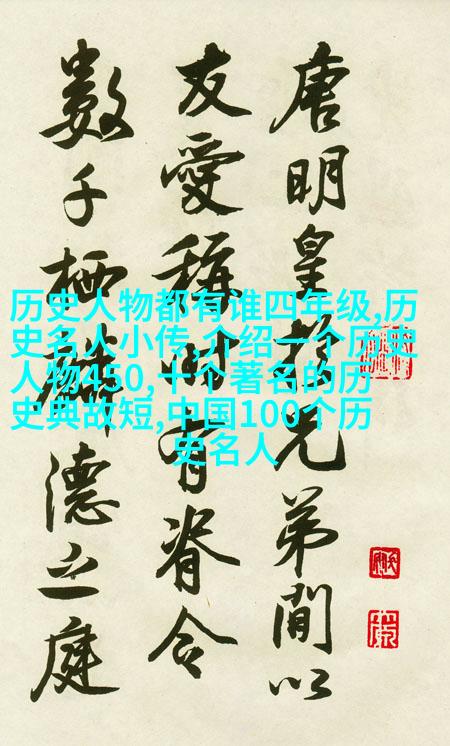 唐明皇於兄弟間以
友愛稱時有脊令
數千栖麟德之庭
历史人物都有谁四年级,历
史名人小传,介绍一个历史
人物450,十个著名的历
史典故短,中国100个历
史名人